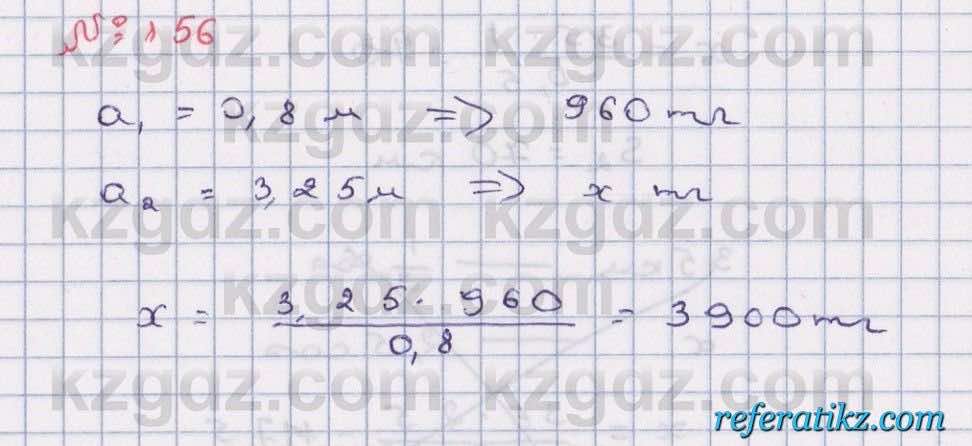 № 156
kzgdz.com kzgdz.com
a₁ = 0,8 м => 960 тг
kzgdz.com kzgdz.com
a₂ = 3,25 м => x тг
kzgdz.com kzgdz.com
kzgdz.com kzgdz.com
x = 3,25 · 960 / 0,8 = 3900 тг
kzgdz.com kzgdz.com
referatikz.com